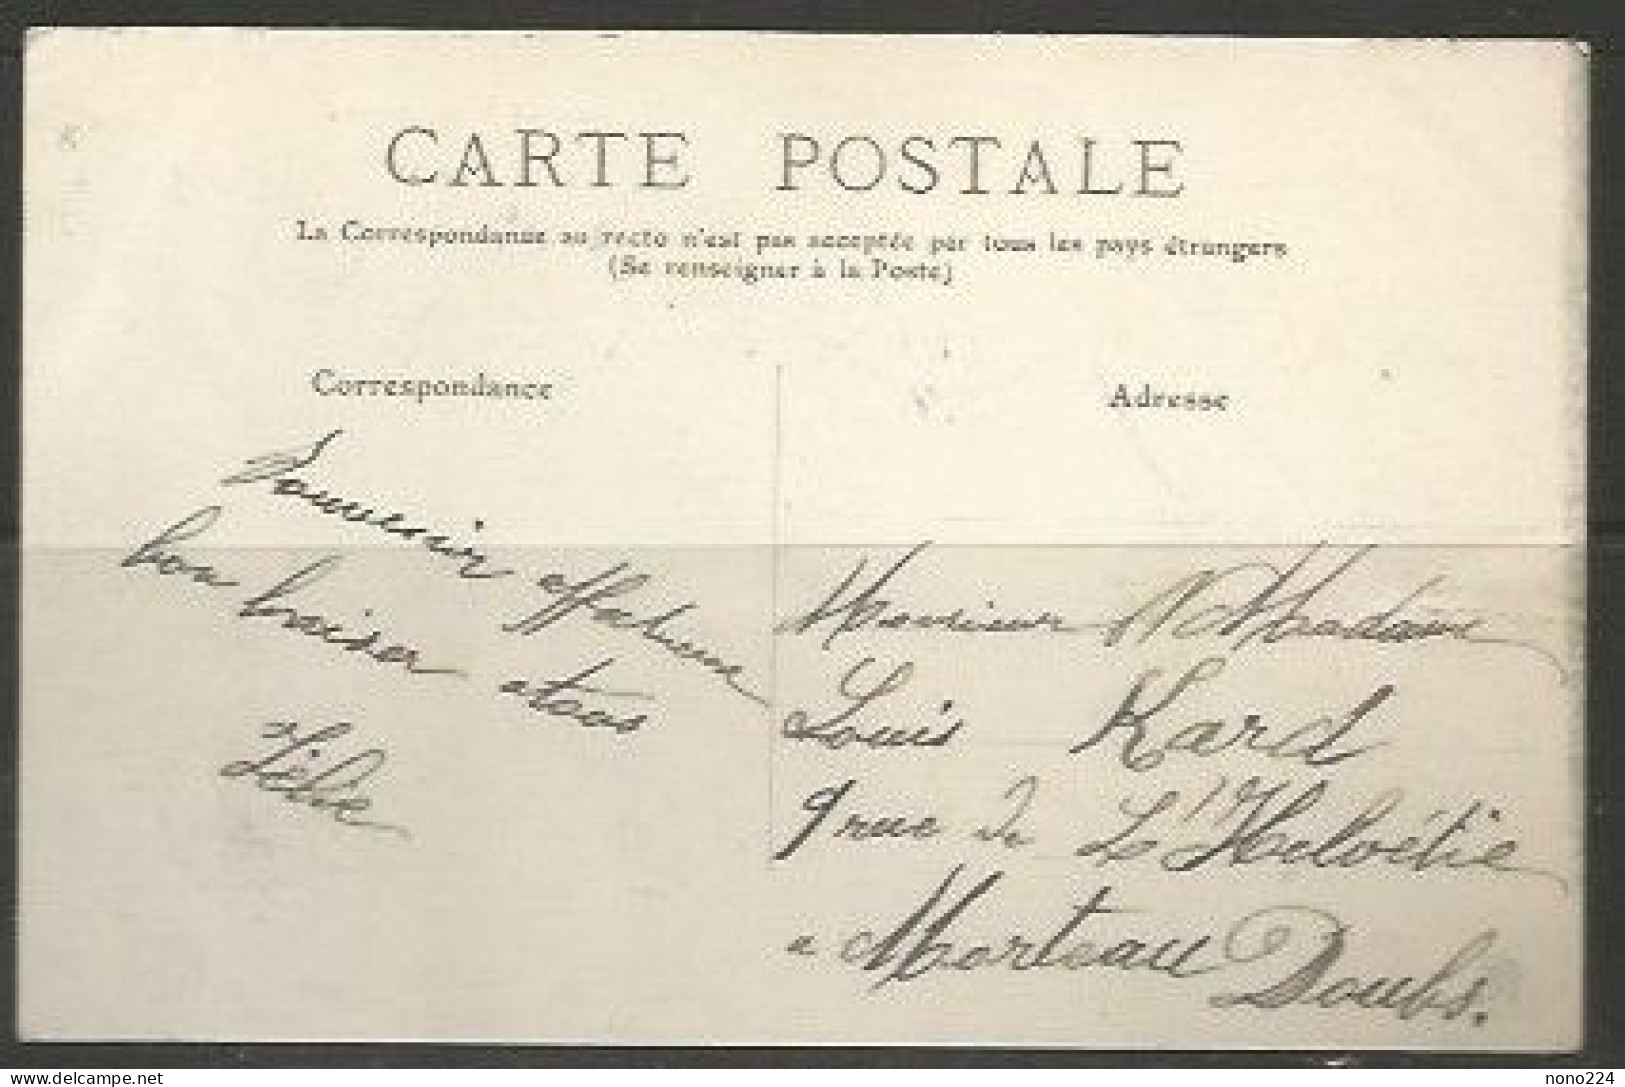 CARTE POSTALE
La Correspondance au recto n'est pas acceptée par tous les pays étrangers
(Se renseigner à la Poste)
Correspondance
Adresse
Souvenir affectueux
bon baiser a tous
Monsieur Madame
Louis Kard
9 rue de L'Helvétie
a Morteau Doubs.
nono224